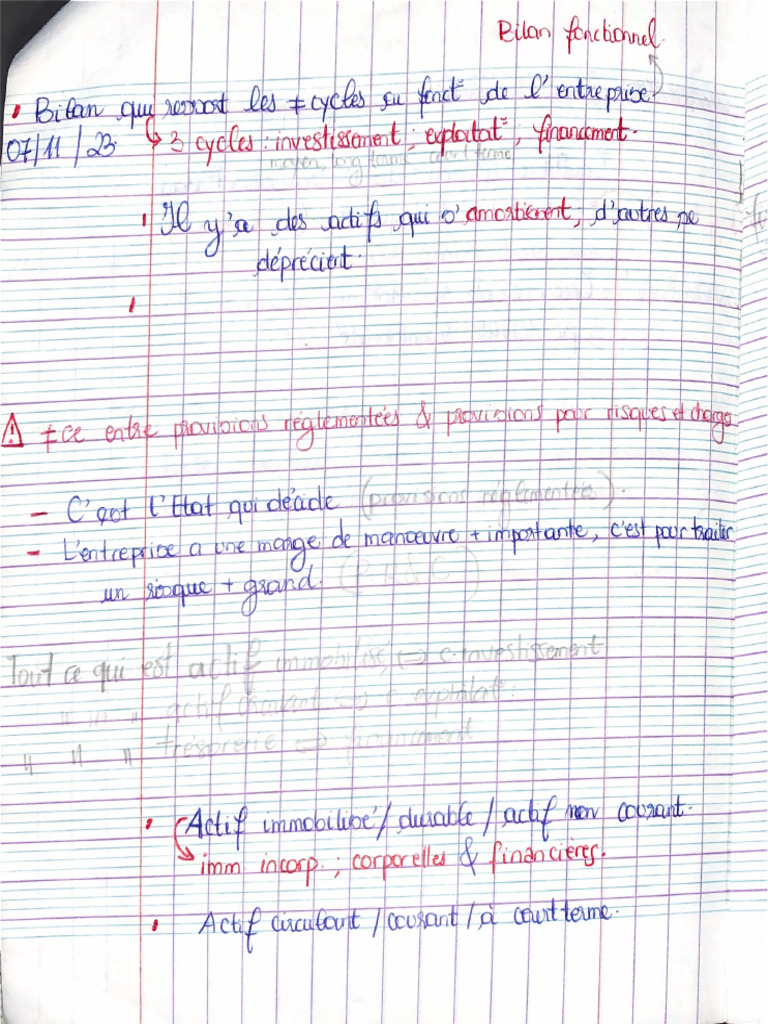 Bilan fonctionnel
• Bilan qui ressort les ≠ cycles du fonct° de l'entreprise.
07/11/23 ↳ 3 cycles : investissement ; exploitat° ; financement.
moyen, long terme court terme
• Il y'a des actifs qui s'amortissent, d'autres se
déprécient.
⚠ ≠ce entre provisions réglementées & provisions pour risques et charges
- C'est l'Etat qui décide (provisions réglementées).
- L'entreprise a une marge de manœuvre + importante, c'est pour traiter
un risque + grand. (P R & C)
Tout ce qui est actif immobilisé, → c. investissement
" " " actif circulant → c exploitat°.
" " " trésorerie → financement
• Actif immobilisé / durable / actif non courant.
↳ imm. incorp. ; corporelles & financières.
• Actif circulant / courant / à court terme.